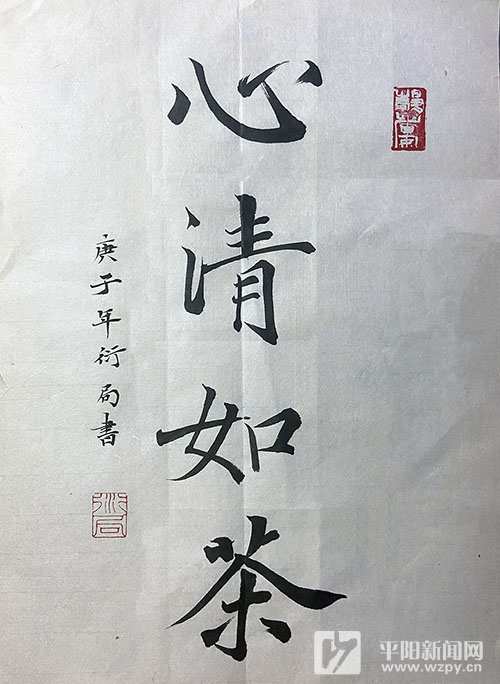 心清如茶
庚子年衍局书
衍局
平阳新闻网
www.wzpy.cn